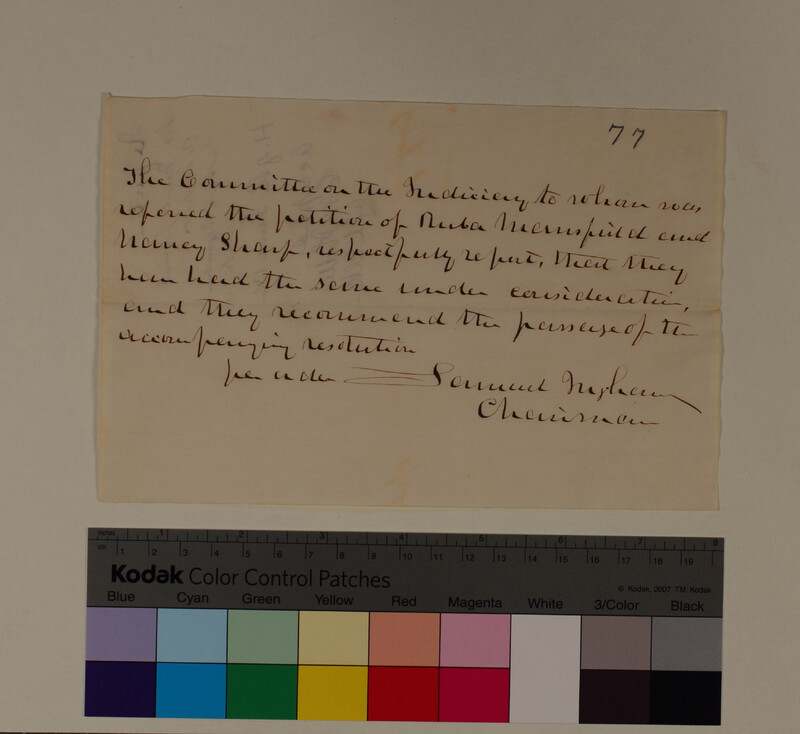 77
The Committee on the Judiciary to whom was
referred the petition of Ruba Mansfield and
Nancy Sharp, respectfully report, that they
have had the same under consideration,
and they recommend the passage of the
accompanying resolution
per order Samuel Ingham
Chairman
inches 1 2 3 4 5 6 7 8
cm 1 2 3 4 5 6 7 8 9 10 11 12 13 14 15 16 17 18 19
Kodak Color Control Patches
© Kodak, 2007 TM: Kodak
Blue Cyan Green Yellow Red Magenta White 3/Color Black